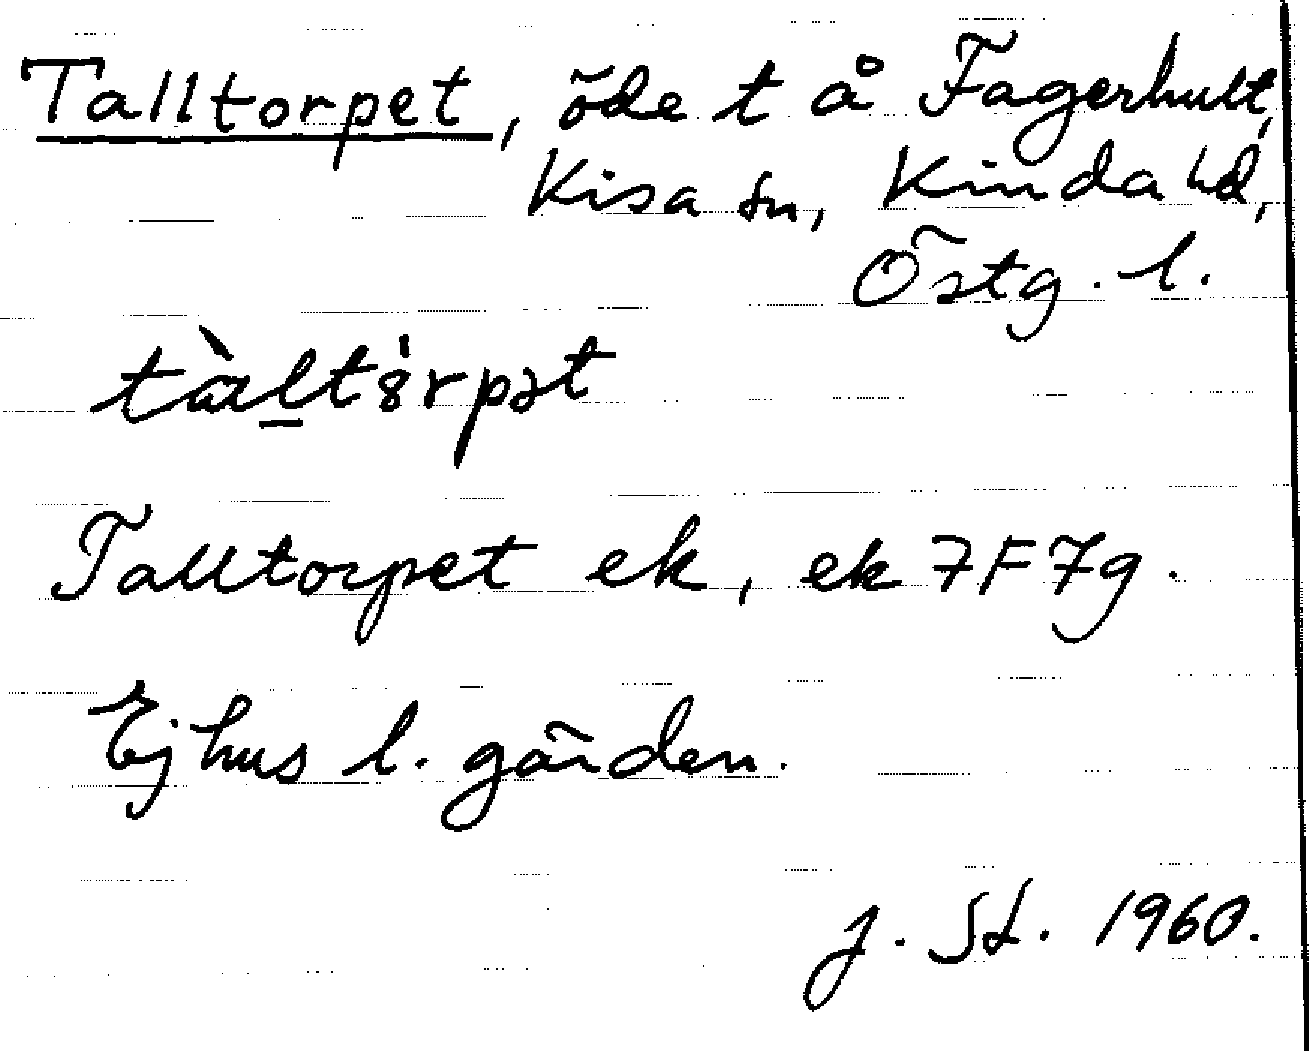 Talltorpet, öde t å Fagerhult,
Kisa sn, Kinda hd,
Östg. l.
tàltȯrpət
Talltorpet ek, ek 7F7g.
Ej hus l. gärden.
J. St. 1960.